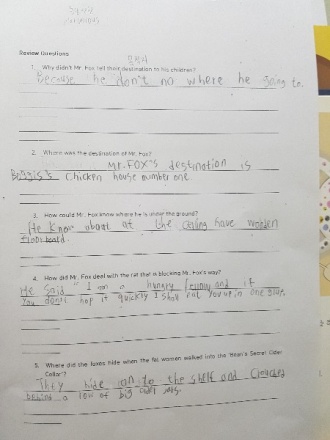 Review Questions
목적지
1. Why didn't Mr. Fox tell their destination to his children?
Because he don't no where he going to.
2. Where was the destination of Mr. Fox?
Mr. FOX's destination is
Boggis's chicken house number one.
3. How could Mr. Fox know where he is under the ground?
He know about at the ceiling have wooden
floor board.
4. How did Mr. Fox deal with the rat that is blocking Mr. Fox's way?
He said " I am a hungry and if
You don't hop it quickly I shall eat you up in one gulp.
5. Where did the foxes hide when the fat women walked into the 'Bean's Secret Cider
Cellar'?
They hide on to the shelf and Crouched
behind a row of big cider jars.